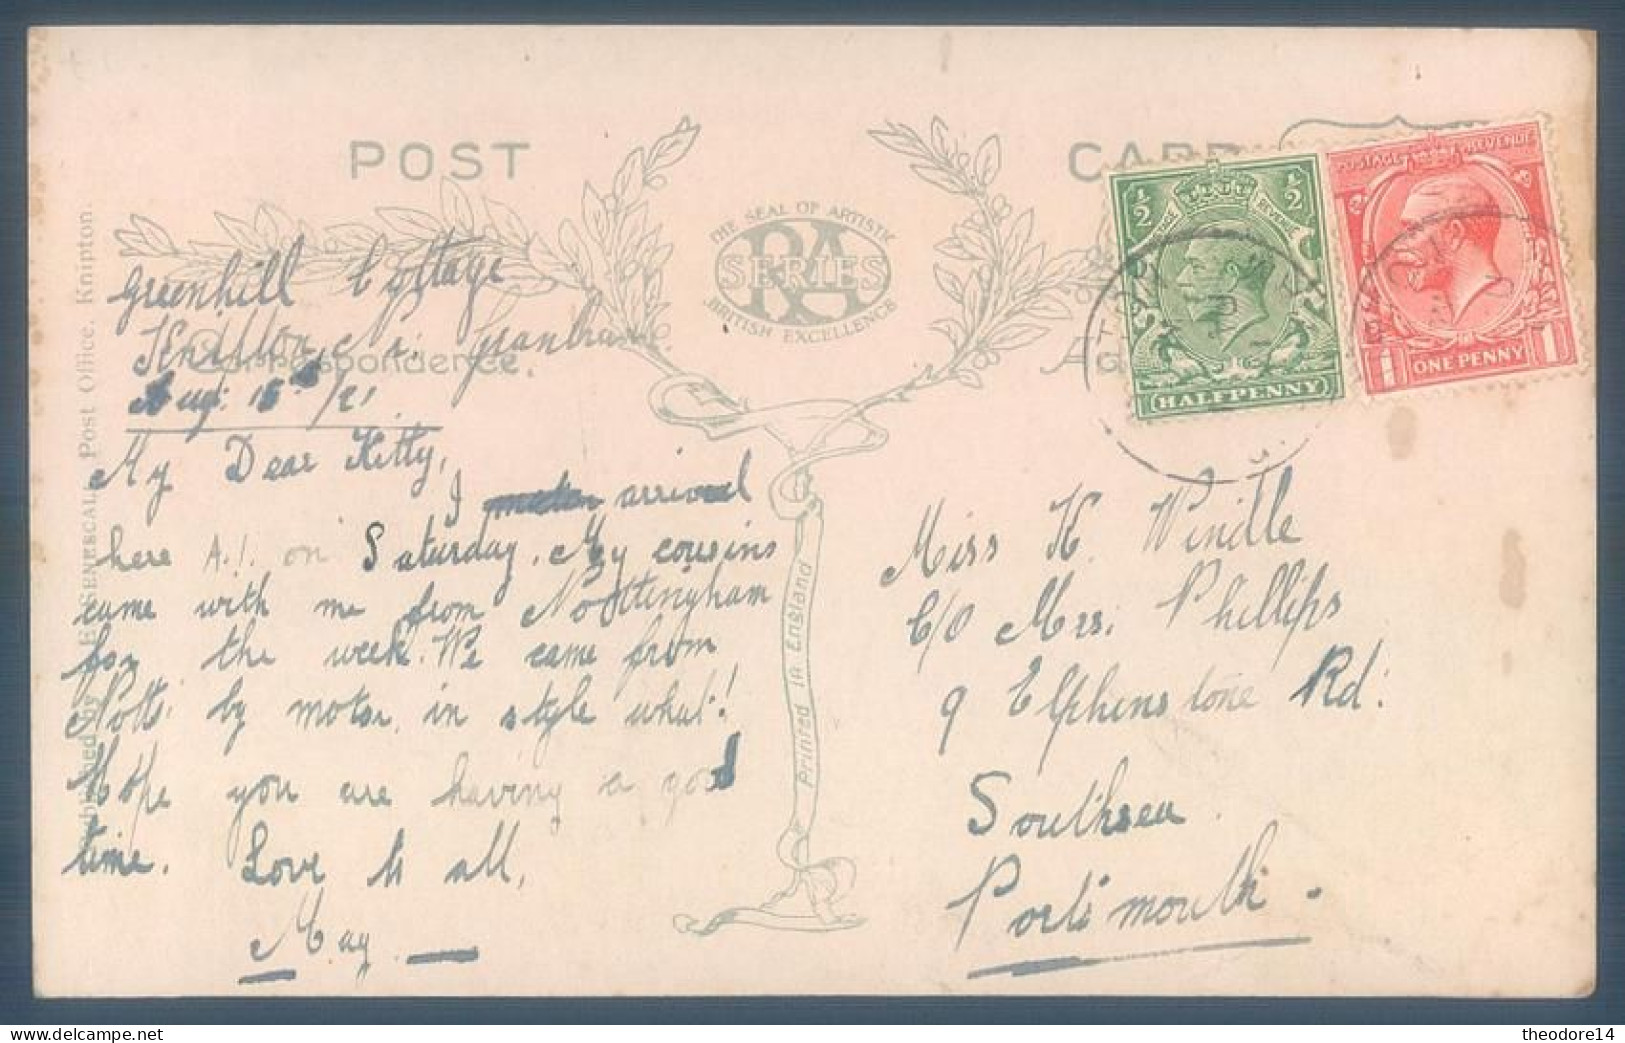 POST CARD
THE SEAL OF ARTISTIC
RA
SERIES
BRITISH EXCELLENCE
Greenhill Cottage
Knipton, Nr. Grantham
Correspondence.
Aug: 15th/21
My Dear Kitty,
I arrived
here A.1. on Saturday. My cousins
came with me from Nottingham
for the week. We came from
Notts: by motor, in style what!
Hope you are having a good
time. Love to all,
May.
Published by E. SENESCALL, Post Office, Knipton.
Printed in England
½ ½
POSTAGE REVENUE
HALFPENNY
POSTAGE REVENUE
1 ONE PENNY 1
Miss K. Windle
C/O Mrs. Phillips
9 Elphinstone Rd:
Southsea.
Portsmouth.
theodore14